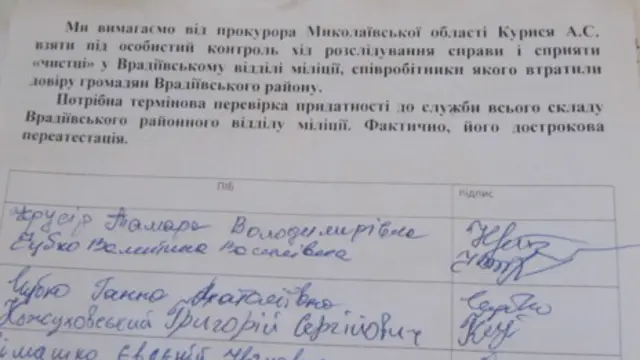 Ми вимагаємо від прокурора Миколаївської області Курися А.С.
взяти під особистий контроль хід розслідування справи і сприяти
«чистці» у Врадіївському відділі міліції, співробітники якого втратили
довіру громадян Врадіївського району.
Потрібна термінова перевірка придатності до служби всього складу
Врадіївського районного відділу міліції. Фактично, його дострокова
переатестація.
ПІБ підпис
Тамара Володимирівна
Чубко Валентина Василівна
Чубко Ганна Анатоліївна
Кожуховський Григорій Сергійович
Євгеній